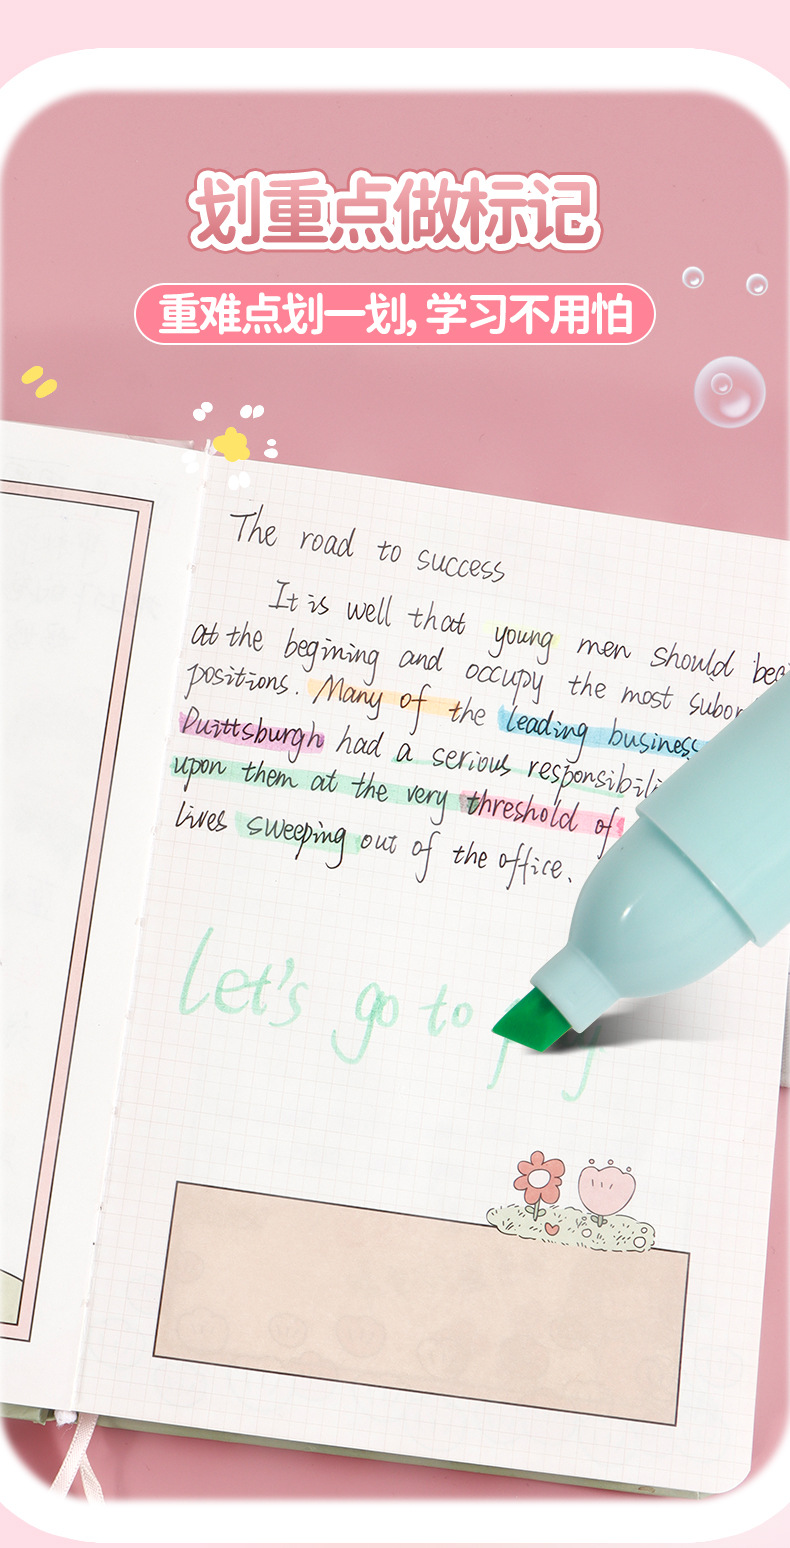 划重点做标记
重难点划一划,学习不用怕
The road to success
It is well that young men should
at the begining and occupy the most
positions. Many of the leading business
Puittsburgh had a serious
upon them at the very threshold of
lives sweeping out of the office.
Let's go to